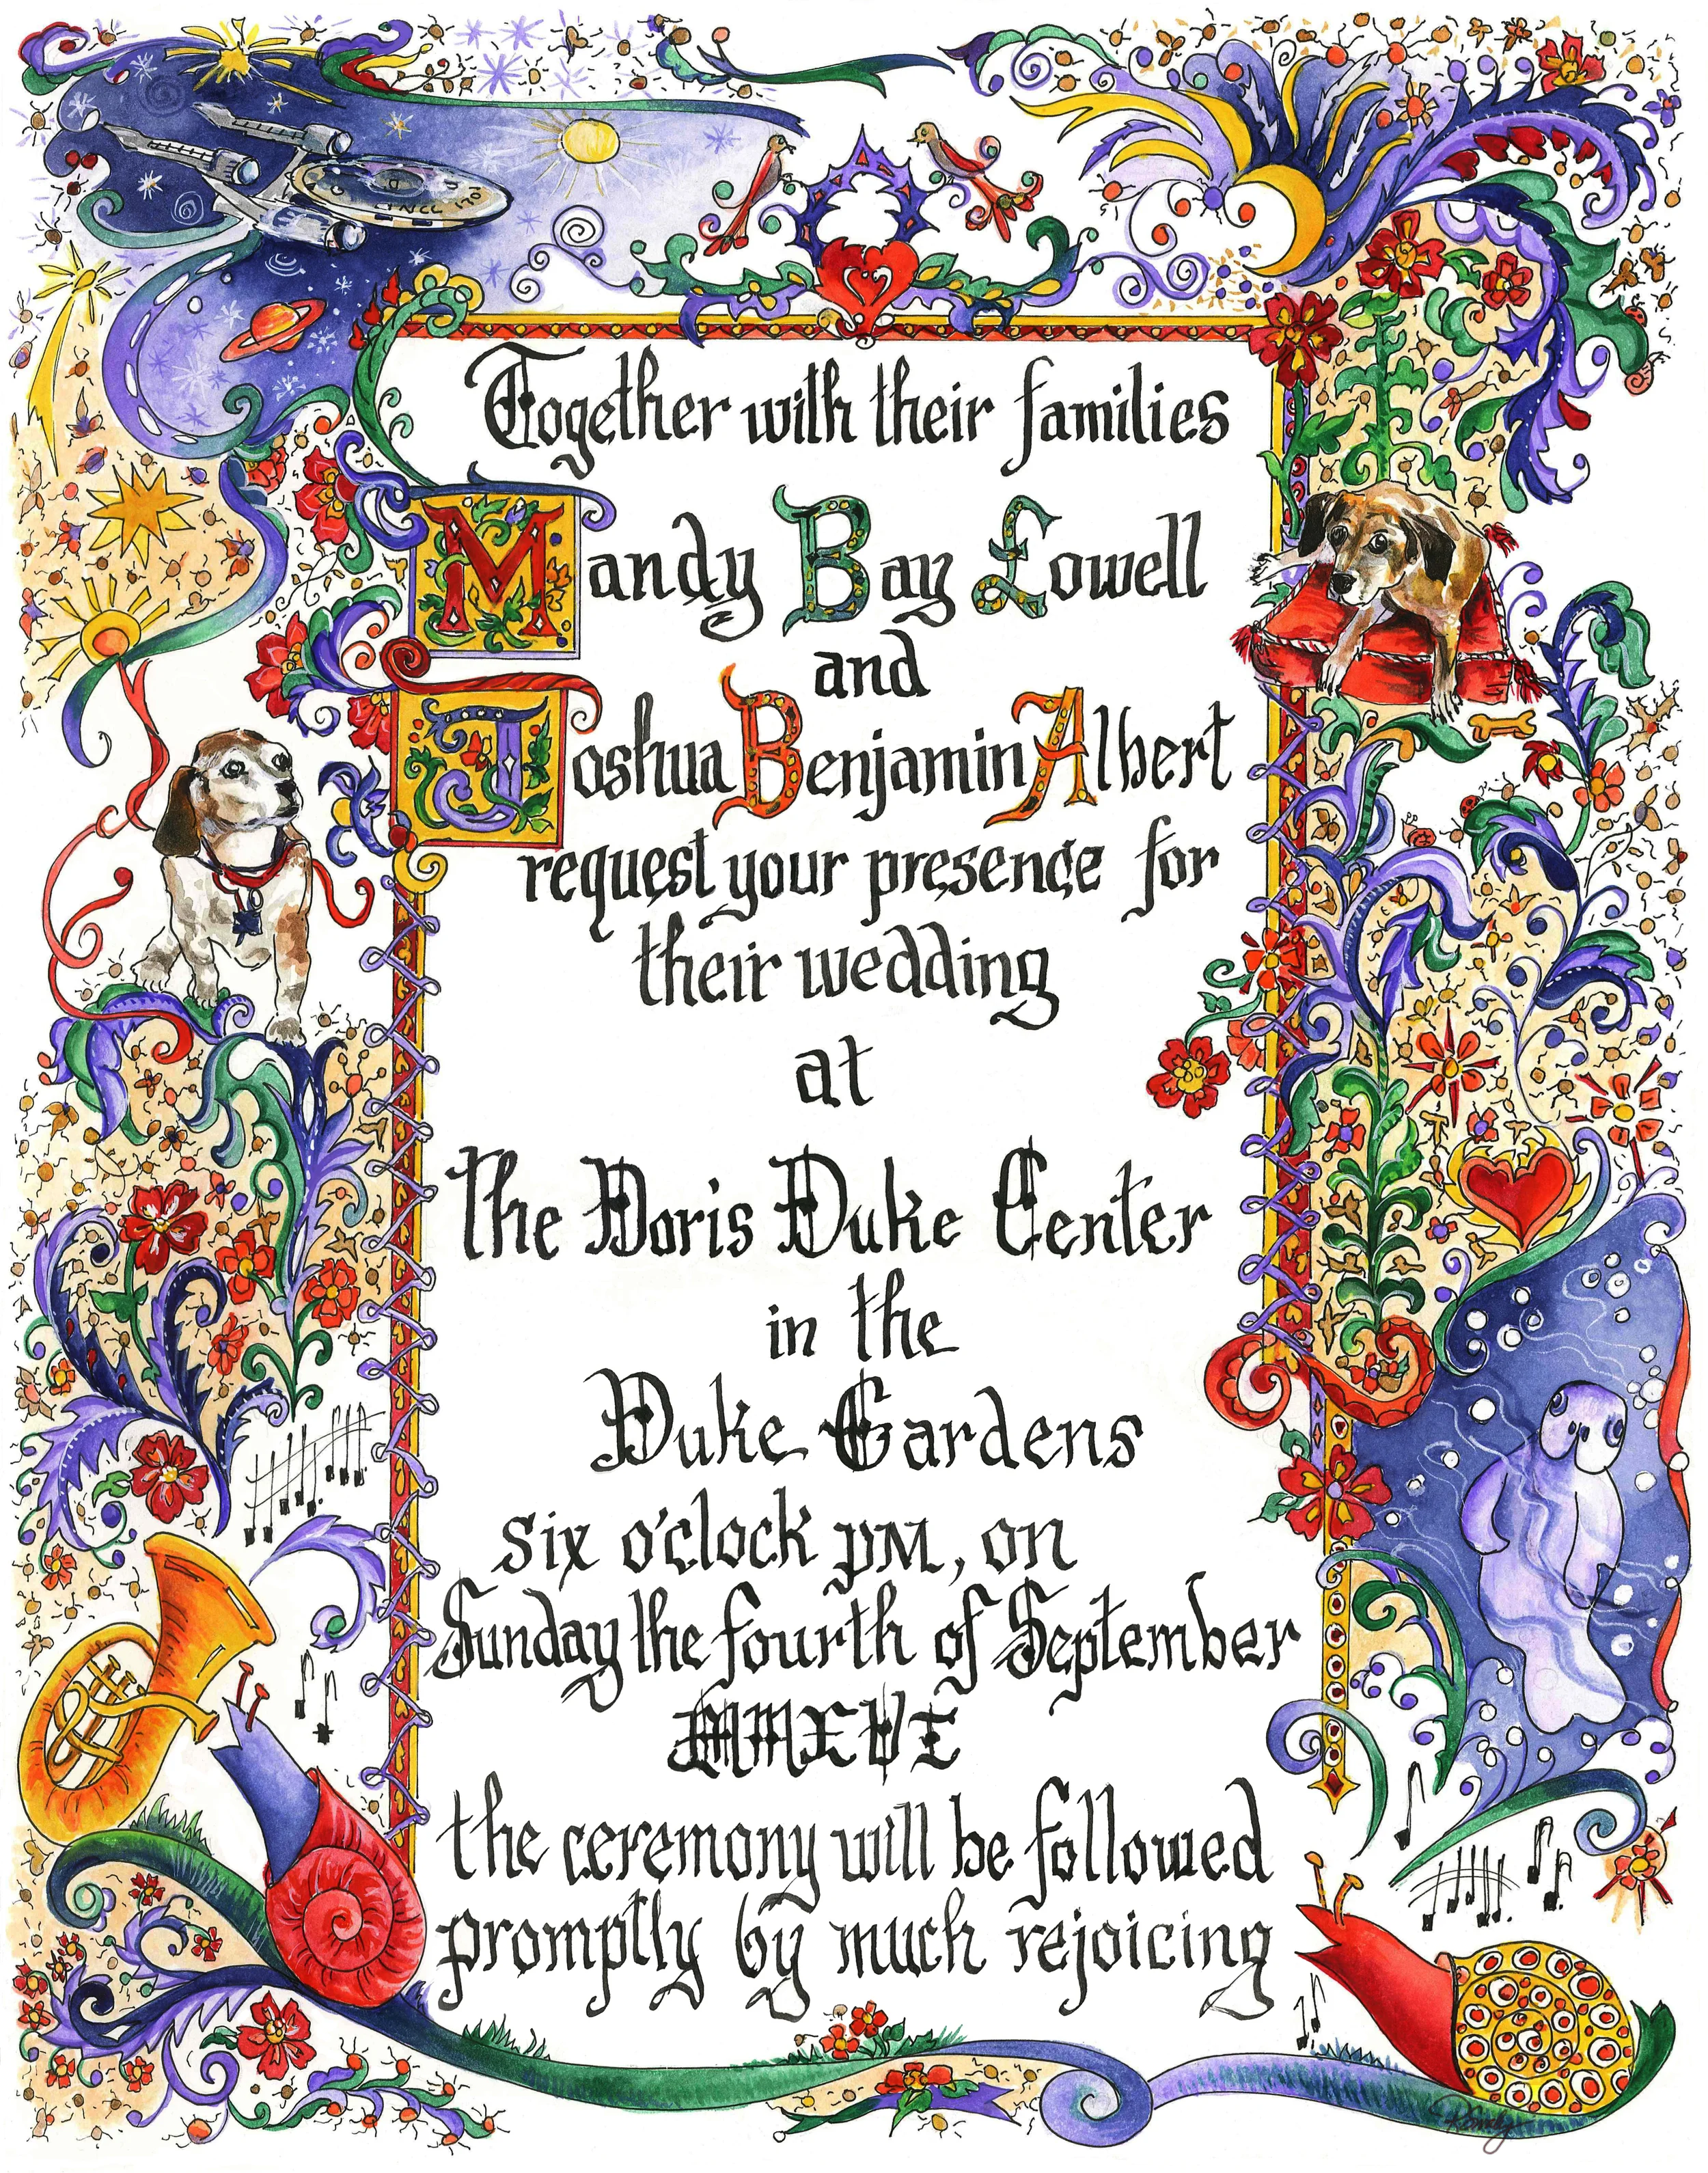 NCC 1701
Together with their families
Mandy Bay Lowell
and
Joshua Benjamin Albert
request your presence for
their wedding
at
The Doris Duke Center
in the
Duke Gardens
six o'clock PM, on
Sunday the fourth of September
MMXVI
the ceremony will be followed
promptly by much rejoicing